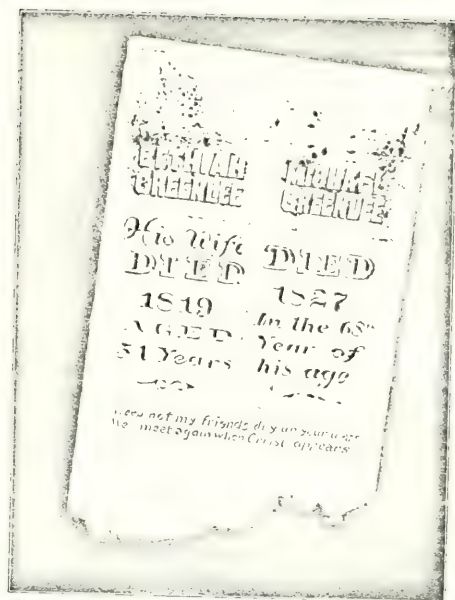 BETHIAH
GREENLEE
His Wife
DIED
1819
AGED
51 Years
MICHAEL
GREENLEE
DIED
1827
In the 68th
Year of
his age
not my friends dry up your tears
We meet again when Christ appears